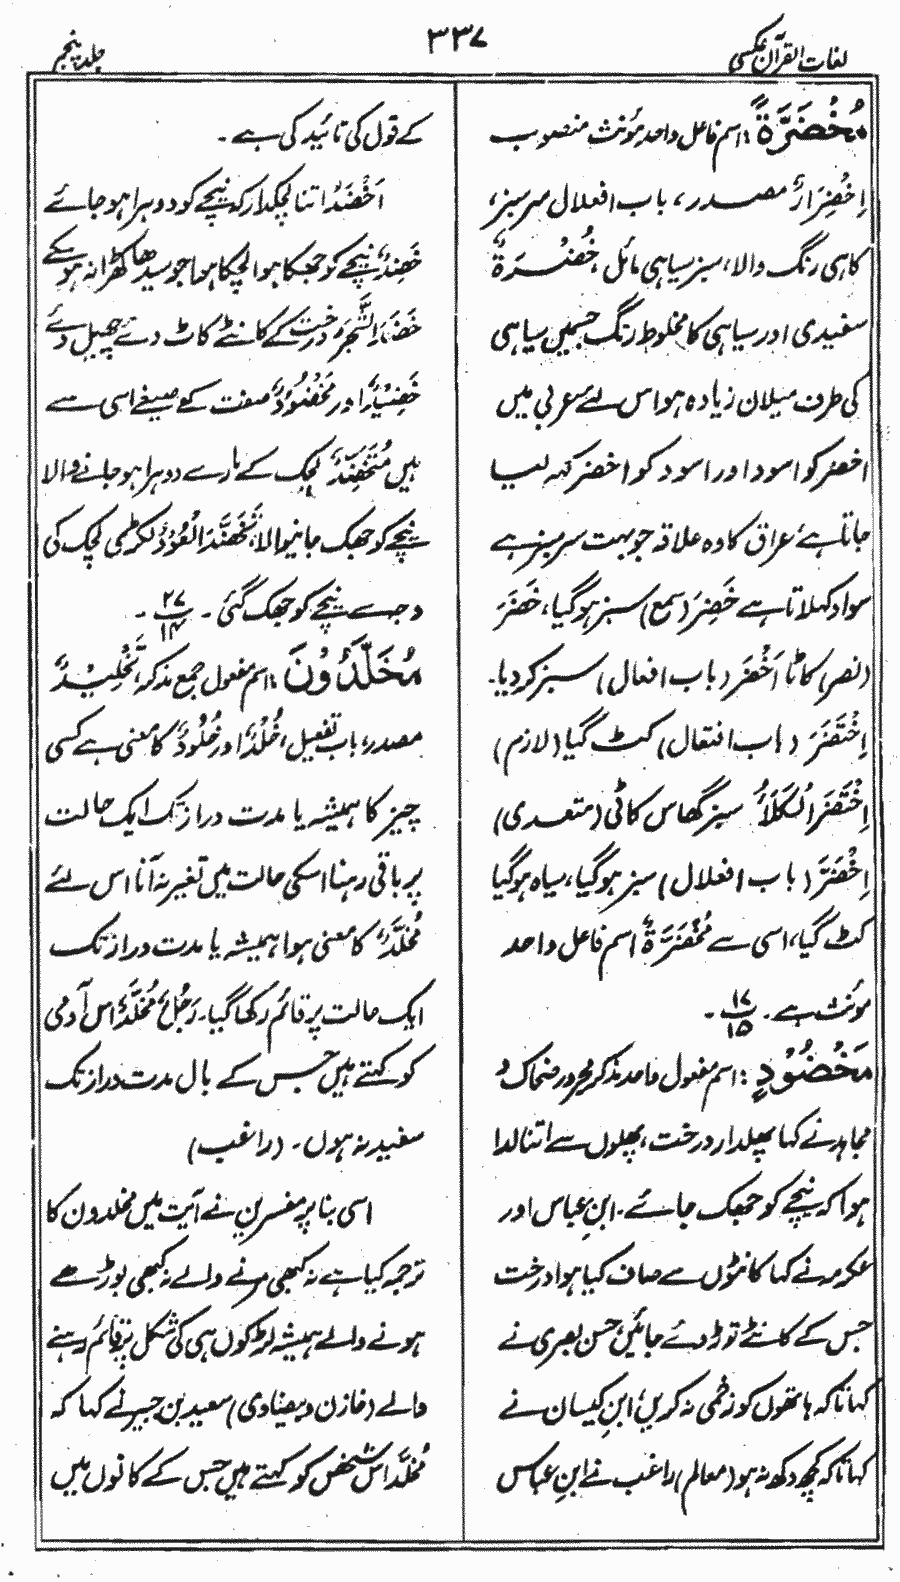 لغات القرآن عکسی
۳۳۷
جلد پنجم
مُخْضَرَّةً: اسم فاعل واحد مؤنث منصوب
اِخْضِرَارٌ مصدر، باب افعلال سرسبز،
کاہی رنگ والا، سبز سیاہی مائل خُضْرَةٌ
سفیدی اور سیاہی کا مخلوط رنگ جسمیں سیاہی
کی طرف میلان زیادہ ہو اس لئے عربی میں
اخضر کو اسود اور اسود کو اخضر کہہ لیا
جاتا ہے عراق کا وہ علاقہ جو بہت سرسبز ہے
سواد کہلاتا ہے خَضِرَ (سمع) سبز ہو گیا، خَضَرَ
(نصر) کاٹا اَخْضَرَ (باب افعال) سبز کر دیا۔
اِخْتَضَرَ (باب افتعال) کٹ گیا (لازم)
اِخْتَضَرَ الْکَلَأَ سبز گھاس کاٹی (متعدی)
اِخْضَرَّ (باب افعلال) سبز ہو گیا، سیاہ ہو گیا
کٹ گیا، اسی سے مُخْضَرَّةٌ اسم فاعل واحد
مؤنث ہے۔ ۱۷/۱۵ ۔
مَخْضُوْدٍ: اسم مفعول واحد مذکر مجرور ضحاک و
مجاہد نے کہا پھلدار درخت، پھلوں سے اتنا لدا
ہوا کہ نیچے کو جھک جائے۔ ابن عباس اور
عکرمہ نے کہا کانٹوں سے صاف کیا ہوا درخت
جس کے کانٹے توڑ دئے جائیں حسن بصری نے
کہا تاکہ ہاتھوں کو زخمی نہ کریں، ابن کیسان نے
کہا تاکہ کچھ دکھ نہ ہو (معالم) راغب نے ابن عباس
کے قول کی تائید کی ہے۔
اَخْضَدُ اتنا لچکدار کہ نیچے کو دوہرا ہو جائے
خَضِدٌ نیچے کو جھکا ہوا لچکا ہوا جو سیدھا کھڑا نہ ہو سکے
خَضَدَ الشَّجَرَ درخت کے کانٹے کاٹ دئے چھیل دئے
خَضِیْدٌ اور مَخْضُوْدٌ صفت کے صیغے اسی سے
ہیں مُتَخَضِّدٌ لچک کے مارے دوہرا ہو جانے والا
نیچے کو جھک جانیوالا، تَخَضَّدَ الْعُوْدُ لکڑی لچک کی
وجہ سے نیچے کو جھک گئی۔ ۲۷/۱۴ ۔
مُخَلَّدُوْنَ: اسم مفعول جمع مذکر، تَخْلِیْدٌ
مصدر، باب تفعیل، خُلْدٌ اور خُلُوْدٌ کا معنی ہے کسی
چیز کا ہمیشہ یا مدت دراز تک ایک حالت
پر باقی رہنا اسکی حالت میں تغیر نہ آنا اس لئے
مُخَلَّدٌ کا معنی ہوا ہمیشہ یا مدت دراز تک
ایک حالت پر قائم رکھا گیا۔ رَجُلٌ مُخَلَّدٌ اس آدمی
کو کہتے ہیں جس کے بال مدت دراز تک
سفید نہ ہوں۔ (راغب)
اسی بنا پر مفسرین نے آیت میں مخلدون کا
ترجمہ کیا ہے نہ کبھی مرنے والے نہ کبھی بوڑھے
ہونے والے ہمیشہ لڑکوں ہی کی شکل پر قائم رہنے
والے (خازن و بیضاوی) سعید بن جبیر نے کہا کہ
مُخَلَّدٌ اس شخص کو کہتے ہیں جس کے کانوں میں